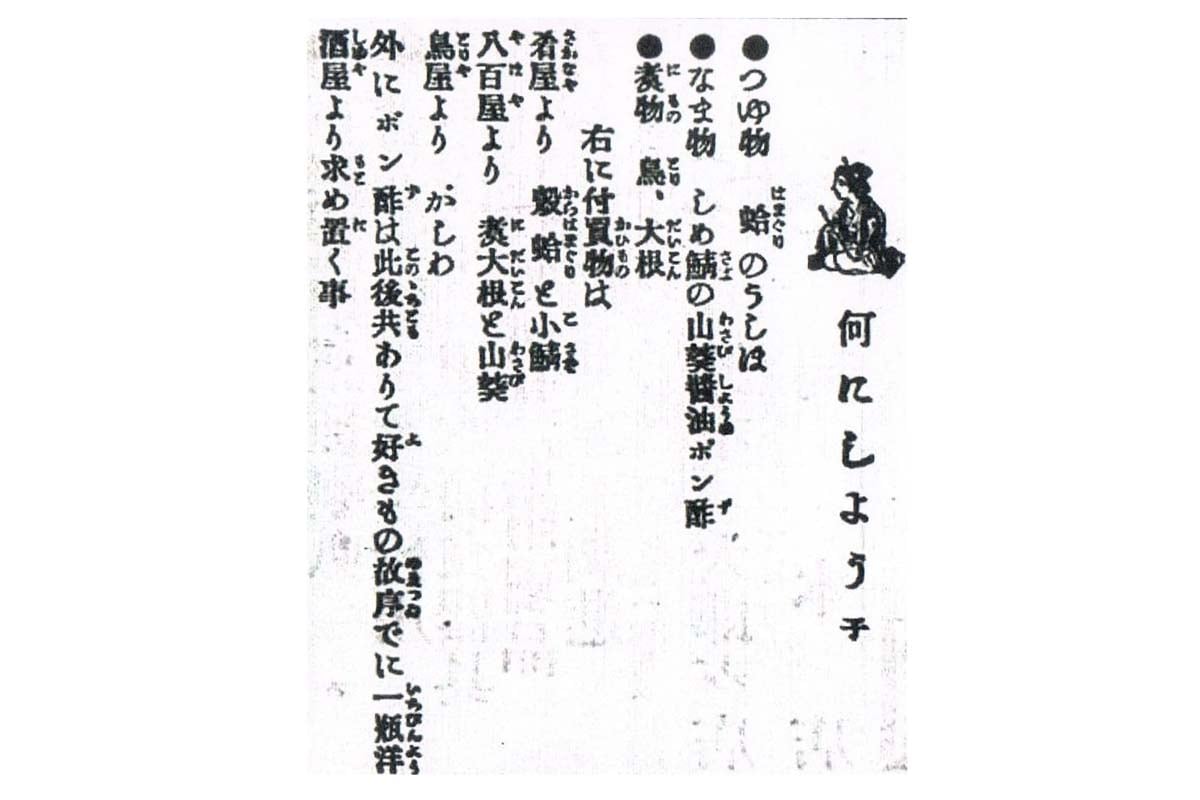 何にしようネ
●つゆ物 蛤のうしほ
●なま物 しめ鯖の山葵醬油ポン酢
●煑物 鳥、大根
右に付買物は
肴屋より 殼蛤と小鯖
八百屋より 煑大根と山葵
鳥屋より かしわ
外にポン酢は此後共ありて好きもの故序でに一瓶洋
酒屋より求め置く事